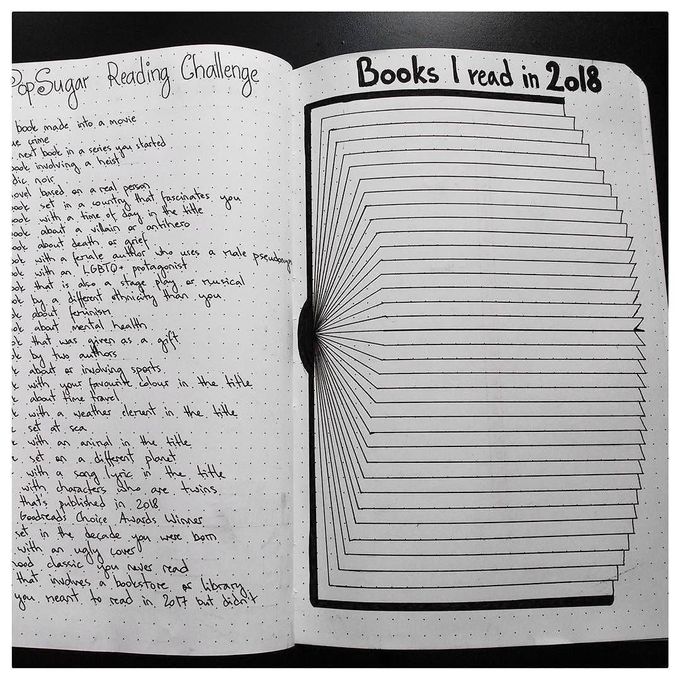 PopSugar Reading Challenge
book made into a movie
ue crime
next book in a series you started
book involving a heist
dic noir
ovel based on a real person
ook set in a country that fascinates you
ook with a time of day in the title
ook about a villain or antihero
ook about death or grief
ok with a female author who uses a male pseudonym
ok with an LGBTQ+ protagonist
ok that is also a stage play or musical
ok by a different ethnicity than you
ok about feminism
ok about mental health
k that was given as a gift
k by two authors
k about or involving sports
k with your favourite colour in the title
about time travel
k with a weather element in the title
set at sea
with an animal in the title
set on a different planet
with a song lyric in the title
with characters who are twins
that's published in 2018
Goodreads Choice Awards Winner
set in the decade you were born
with an ugly cover
ood classic you never read
that involves a bookstore or library
you meant to read in 2017 but didn't
Books I read in 2018